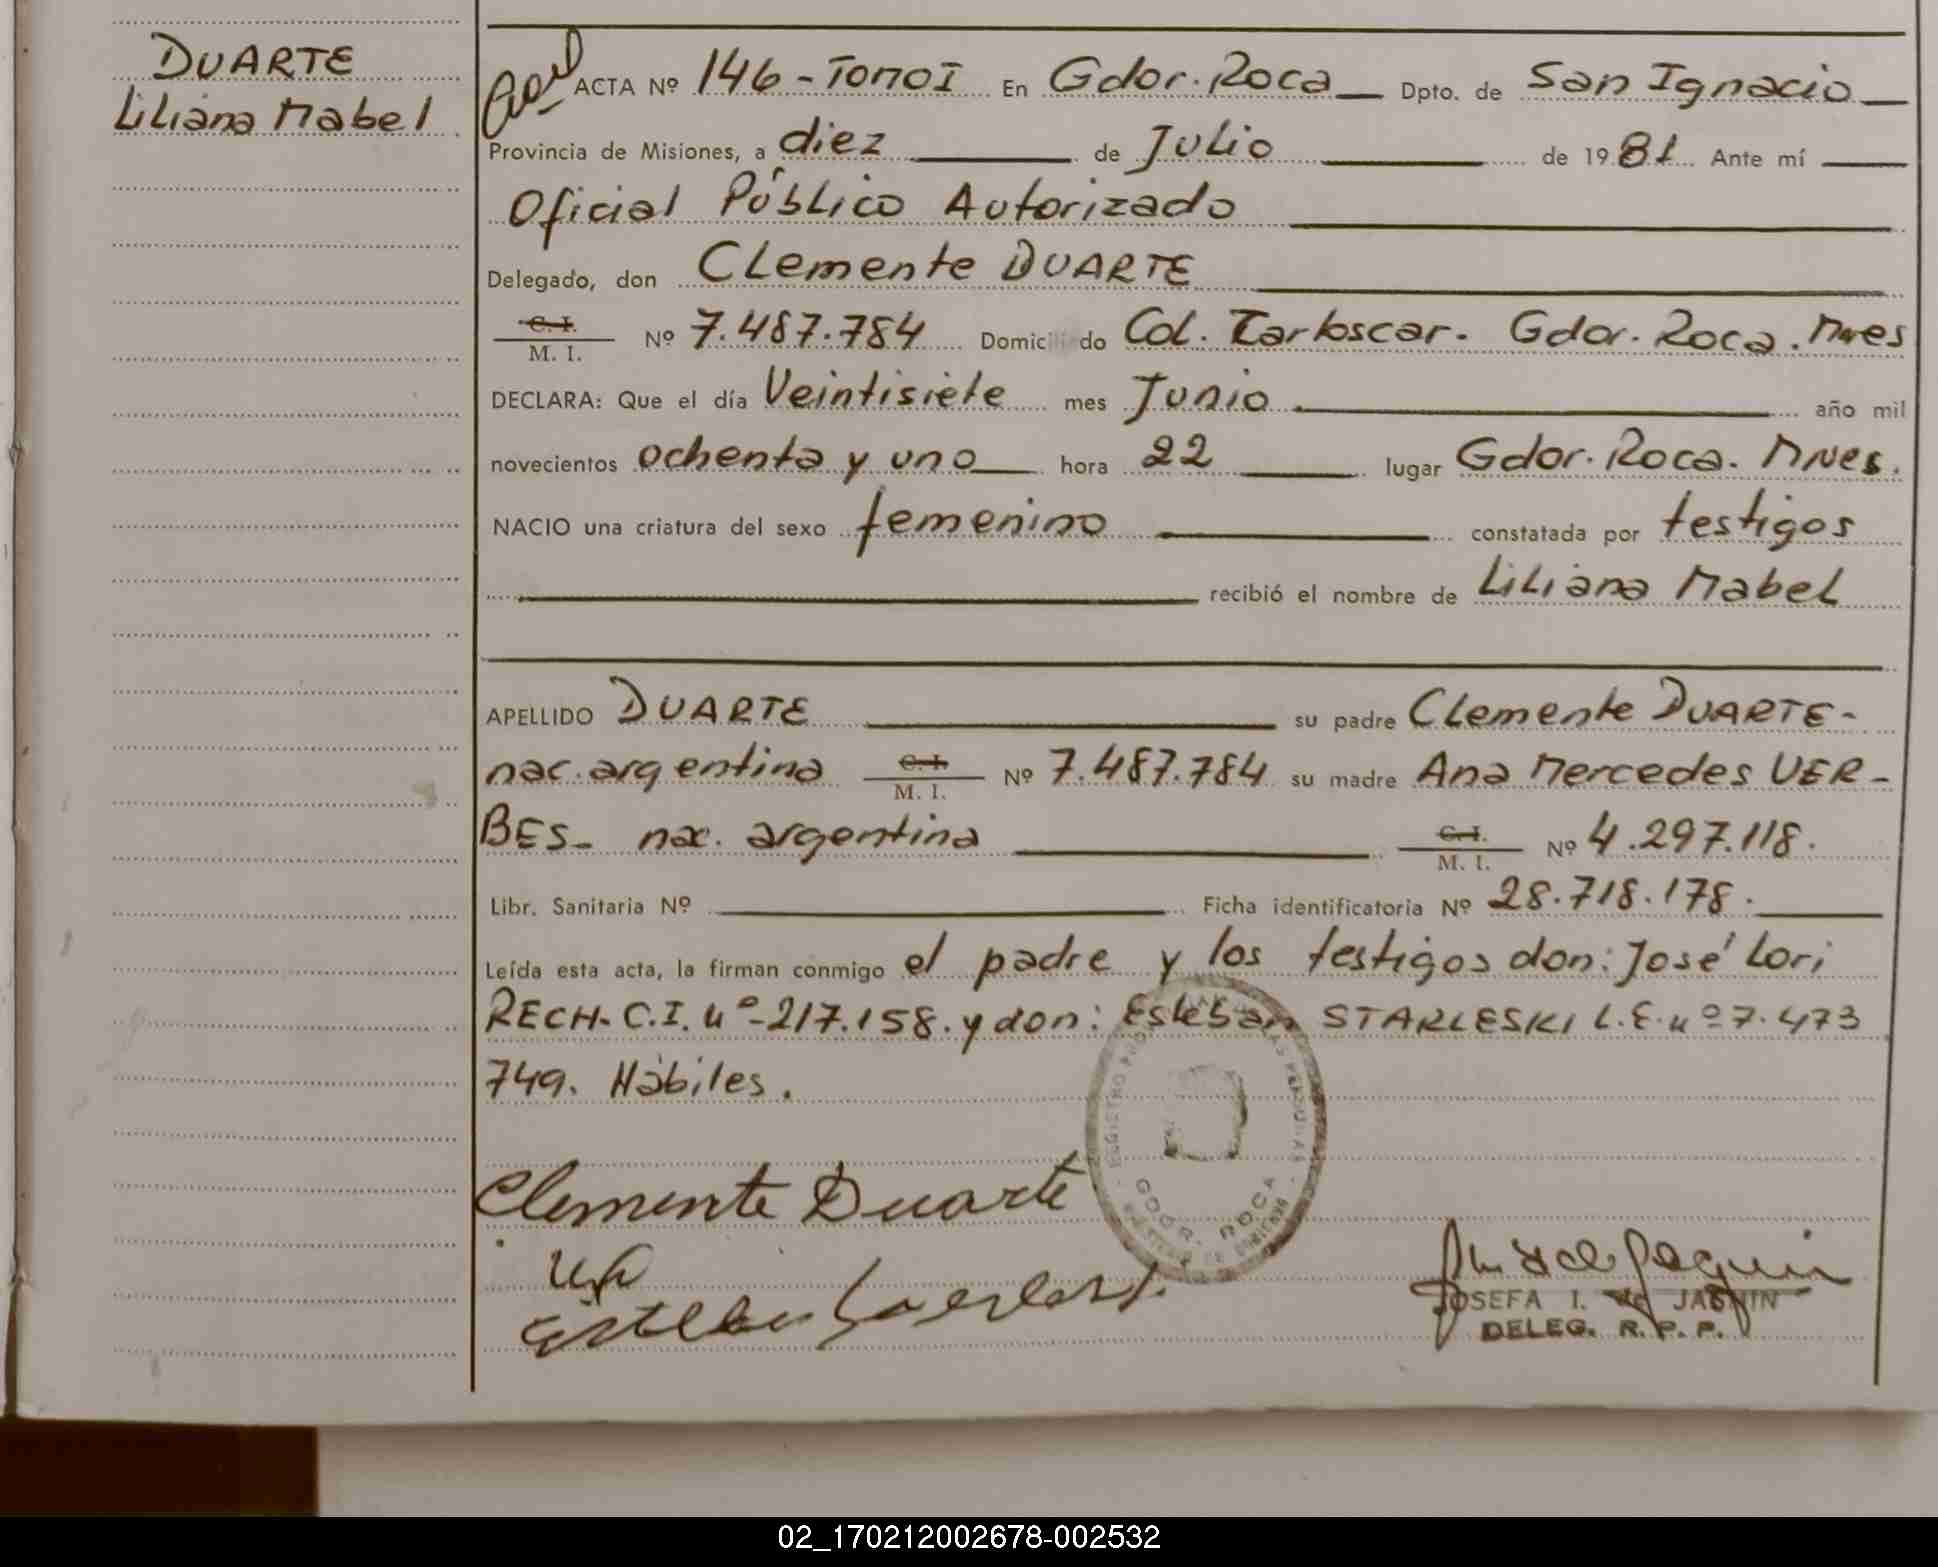 DUARTE
Liliana Mabel
ACTA Nº 146 - Tomo I En Gdor. Roca Dpto. de San Ignacio
Provincia de Misiones, a diez de Julio de 1981 Ante mí
Oficial Público Autorizado
Delegado, don Clemente DUARTE
C. I.
M. I. Nº 7.487.784 Domiciliado Col. Gdor. Roca. Mnes
DECLARA: Que el día Veintisiete mes Junio año mil
novecientos ochenta y uno hora 22 lugar Gdor. Roca. Mnes.
NACIO una criatura del sexo femenino constatada por testigos
recibió el nombre de Liliana Mabel
APELLIDO DUARTE su padre Clemente DUARTE-
nac. argentina C. I. M. I. Nº 7.487.784 su madre Ana Mercedes VER-
BES- nac. argentina C. I. M. I. Nº 4.297.118.
Libr. Sanitaria Nº Ficha identificatoria Nº 28.718.178.
Leída esta acta, la firman conmigo el padre y los testigos don: José Lori
RECH- C.I. nº-217.158. y don: Esteban STARLESKI L.E. nº 7.473
749. Hábiles.
Clemente Duarte
GDOR. ROCA
JOSEFA I. de JAQUIN
DELEG. R. P. P.
02_170212002678-002532